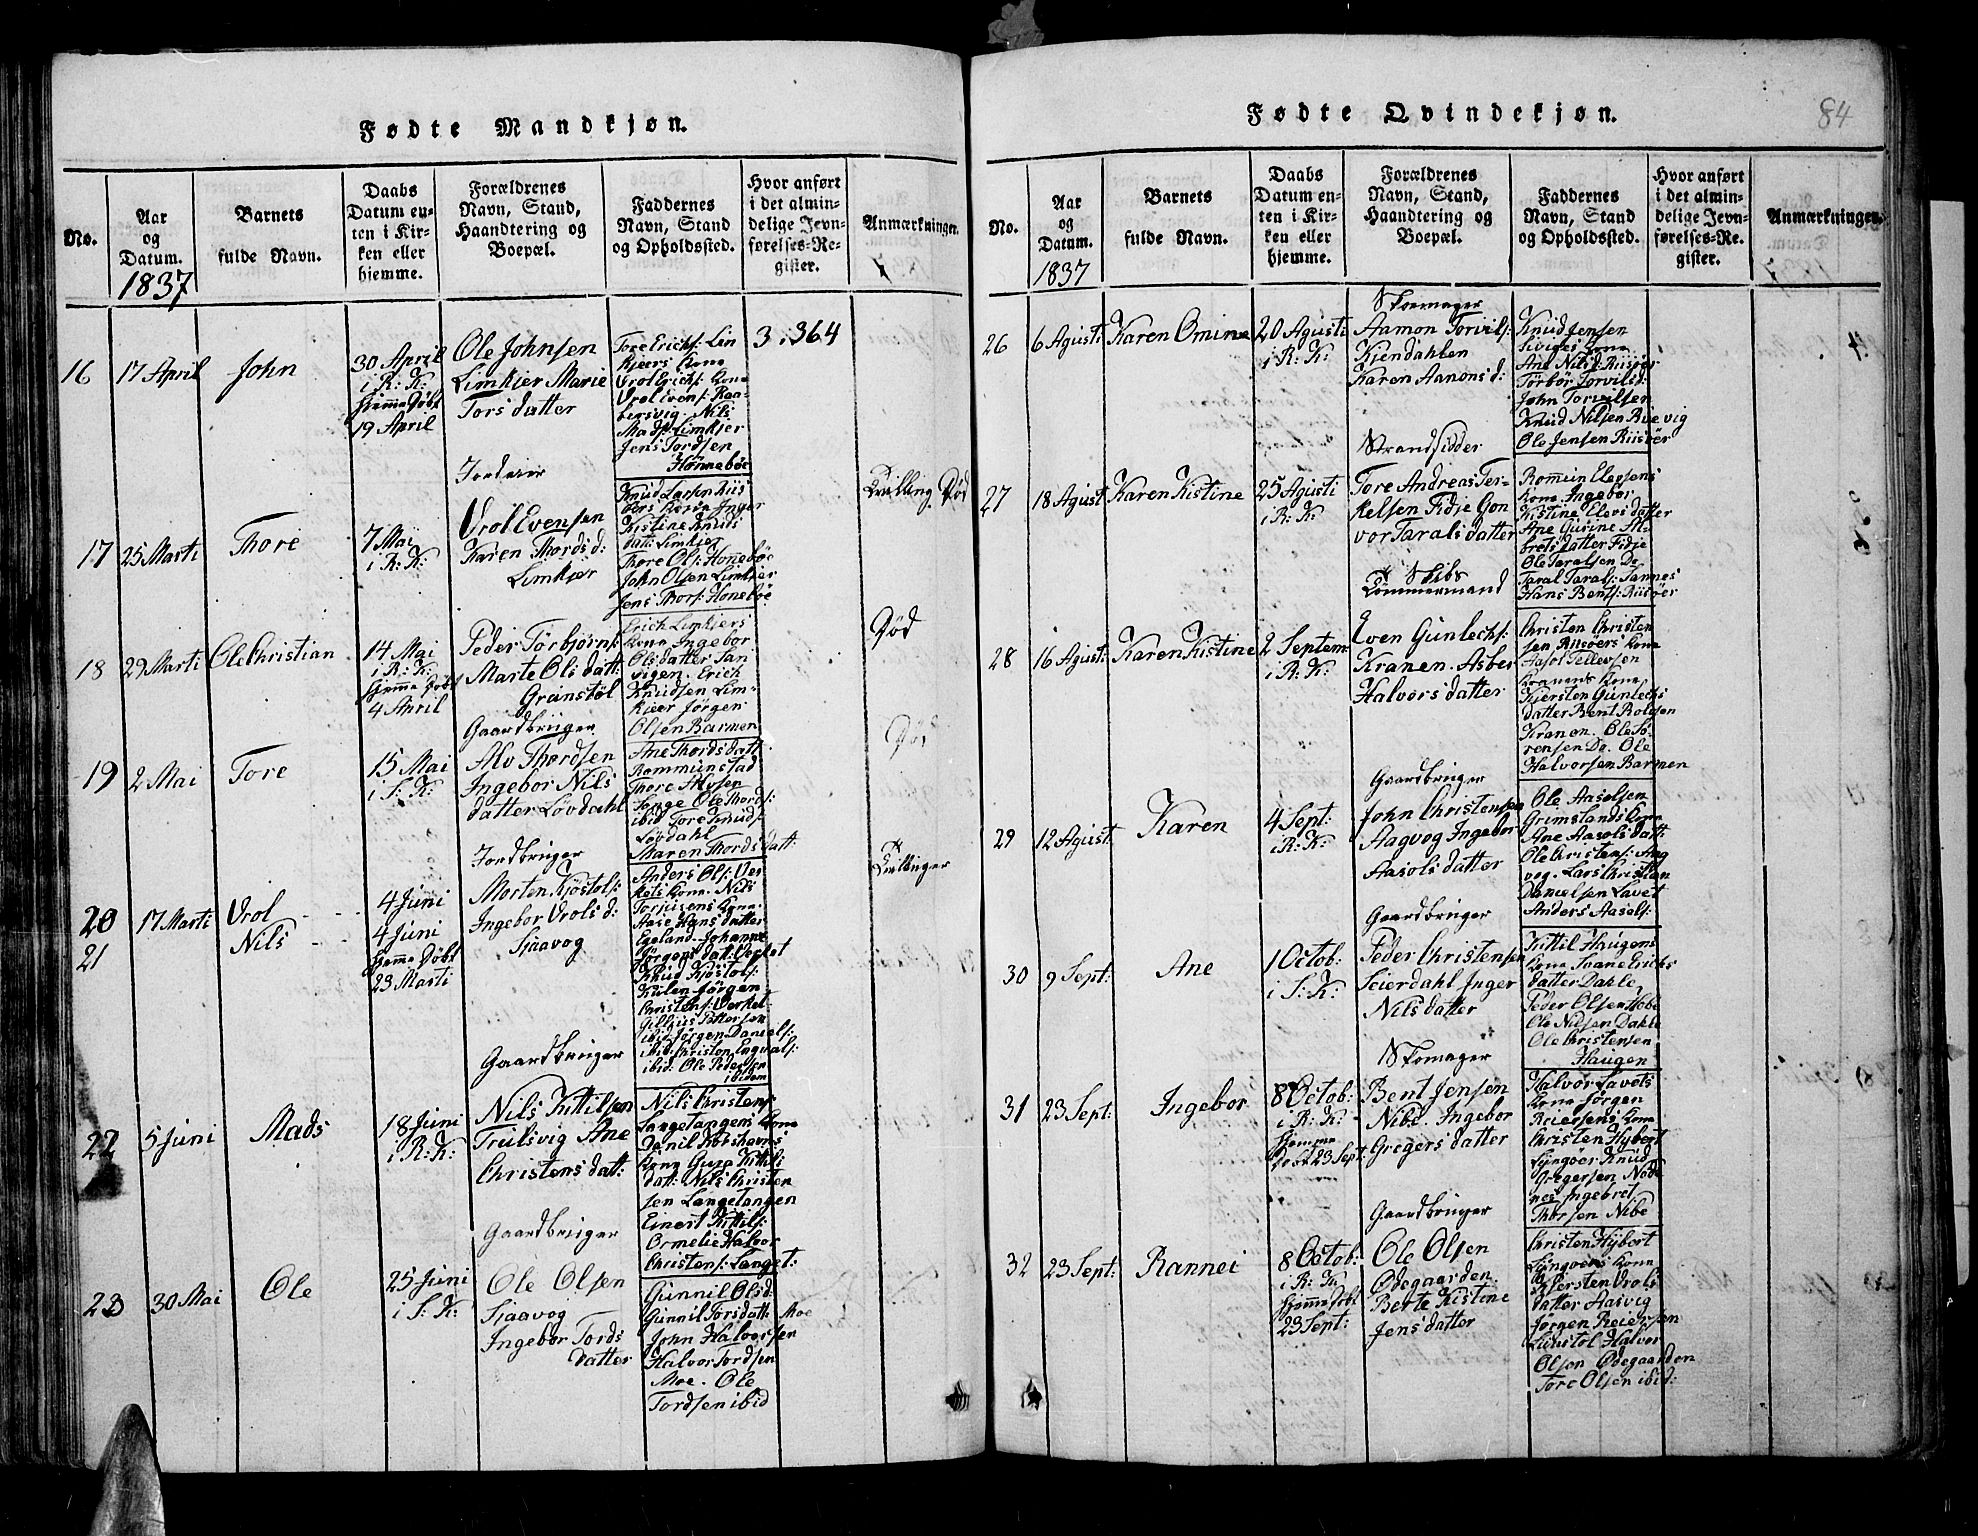 Fødte Mandkjøn.
No.
Aar
og
Datum.
1837
Barnets
fulde Navn.
Daabs
Datum en-
ten i Kir-
ken eller
hjemme.
Forældrenes
Navn, Stand,
Haandtering og
Boepæl.
Faddernes
Navn, Stand
og Opholdssted.
Hvor anført
i det almin-
delige Jevn-
førelses-Re-
gister.
Anmærkninger.
16
17 April
John
30 April
i R: K:
Hjemme Døbt
19 April
Ole Johnsen
Limkjer Marie
Tors datter
Tore Erichs: Lim
kjers Kona
Vrol Erichs: Kona
Vrol Evens: Raa-
bersvig. Nils
Mads: Limkjer
Jens Tordsen
Hönneböe
3. 364
17
25 Marti
Thore
7 Mai
i R: K:
Jordeier
Vrol Evensen
Karen Thords d:
Limkjer
Knud Larsen Riis
Kistine Knuds
datt: Limkjer
Thore Ols: Honeböe
John Olsen Limkjer
Jens Thors: Honeböe
Tvilling. Död
18
29 Marti
Ole Christian
14 Mai
i R: K:
Hjemme Döbt
4 April
Peder Törbjörns:
Marte Ols datt:
Granstöl
Erich Limkjers
Kona Ingebor
Olsdatter San
vigen. Erich
Knudsen Lim-
kjeer Jörgen
Olsen Barmen
Död
19
2 Mai
Tore
15 Mai
i S: K:
Gaardbruger
Alv Thordsen
Ingebor Nils
datter Lövdahl
Ane Thords datt
Rommunstad
Thore Alvsen
Songe Ole Thords:
ibid Tore Knuds:
Lövdahl
Maren Thords datt:
Död
20
21
17 Marti
Vrol
Nils
4 Juni
4 Juni
Hjemme Döbt
23 Marti
Jordbruger
Morten Kjöstols:
Ingebor Vrols d:
Sjaavog
Anders Ols: Ver
kets Kona. Nils
Torjusens Kona
Aase Hans datter
Egeland. Johanne
Jörgens dat: Verket
Knud Kjöstols:
Kiilen Jörgen
Christens: Verket
Gilljus Pettersen
ibid Jörgen Daniels:
ibid Christen Engvals:
ibid: Ole Pedersen
ibidem
Tvillinger
22
5 Juni
Mads
18 Juni
i R: K:
Gaardbruger
Nils Kittilsen
Trulsvig Ane
Christens datt:
Nils Christens:
Langetangens Kona
Danil Korshavns
Kona Guro Kittils
datt: Nils Christen
sen Langetangen
Einert Kittils:
Ormelie Halvor
Christens: Langet:
23
30 Mai
Ole
25 Juni
i S: K:
Gaardbruger
Ole Olsen
Sjaavog
Ingebor Tords
datter
Gunnil Olsd:
Gunnil Torsdatt: Moe
John Halvorsen
Halvor Tordsen
Moe. Ole
Tordsen ibid
Fødte Qvindekjøn.
84
No.
Aar
og
Datum.
1837
Barnets
fulde Navn.
Daabs
Datum en-
ten i Kir-
ken eller
hjemme.
Forældrenes
Navn, Stand,
Haandtering og
Boepæl.
Faddernes
Navn, Stand
og Opholdssted.
Hvor anført
i det almin-
delige Jevn-
førelses-Re-
gister.
Anmærkninger.
26
6 Agusti
Karen Omine
20 Agusti
i R: K:
Skomager
Aamon Torvils:
Kjendahlen
Karen Aanons d:
Knud Jensen
Siviges Kona
Ane Nils d: Riisöer
Törbör Torvils d:
John Torvilsen
Knud Nilsen Buevig
Ole Jensen Riisöer
27
18 Agust:
Karen Kistine
25 Agusti
i R: K:
Strandsidder
Tore Andreas Ter-
kelsen Fidje Gon
vor Tarals datter
Romun Elevsens
Kona Ingebor
Kistine Elevs datter
Ane Gurine Al-
brets datter Fidje
Ole Taralsen Do
Taral Tarals: Sannes
Hans Bents: Riisöer
28
16 Agust:
Karen Kistine
2 Septem
i R: K:
Skibs
Tömmermand
Even Gunlechs:
Kranen. Asber
Halvors datter
Christen Christen
sen Riisöers Kona
Aasol Tellevsen
Kranens Kona
Kjersten Gunlechs
datter Bent Rolvsen
Kranen. Ole Sö-
rensen Do. Ole
Halvorsen Barmen
29
12 Agust:
Karen
4 Sept:
i R: K:
Gaardbruger
John Christensen
Aagvog Ingebor
Aasols datter
Ole Aasolsen
Grimslands Kona
Ane Aasols datt
Ole Christens: Aag
vog. Lars Christian
Danielsen Lavet
Anders Aasols:
30
9 Sept:
Ane
1 Octob:
i S: K:
Gaardbruger
Peder Christensen
Seierdahl Inger
Nils datter
Kittil Haugens
Kona Svane Erichs
datter Dahle
Peder Olsen Hobe
Ole Nilsen Dahle
Ole Christensen
Haugen
31
23 Sept:
Ingebor
8 Octob:
i R: K:
Hjemme
Döbt 23 Sept:
Skomager
Bent Jensen
Nibe. Ingebor
Gregers datter
Halvor Lavets
Kona Jörgen
Reiersens Kona
Christen Hybert
Lyngöer Knud
Gregersen Nöde
nes Ingebret
Thorsen Nibe
32
23 Sept:
Rannei
8 Octob:
i R: K:
Hjemme Döbt
23 Sept:
Gaardbruger
Ole Olsen
Ödegaarden.
Berte Kistine
Jens datter
Christen Hybert
Lyngöers Kona
Kjersten Vrols
datter Aasvig
Jörgen Reiersen
Lunstöl Halvor
Olsen Ödegaarden
Tore Olsen ibid: